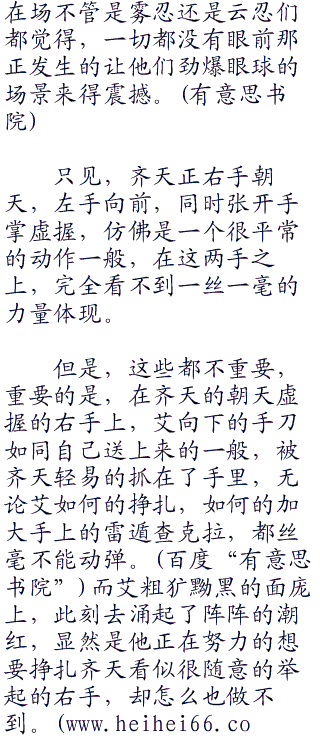 在场不管是雾忍还是云忍们
都觉得，一切都没有眼前那
正发生的让他们劲爆眼球的
场景来得震撼。（有意思书
院）
只见，齐天正右手朝
天，左手向前，同时张开手
掌虚握，仿佛是一个很平常
的动作一般，在这两手之
上，完全看不到一丝一毫的
力量体现。
但是，这些都不重要，
重要的是，在齐天的朝天虚
握的右手上，艾向下的手刀
如同自己送上来的一般，被
齐天轻易的抓在了手里，无
论艾如何的挣扎，如何的加
大手上的雷遁查克拉，都丝
毫不能动弹。（百度“有意思
书院”）而艾粗犷黝黑的面庞
上，此刻去涌起了阵阵的潮
红，显然是他正在努力的想
要挣扎齐天看似很随意的举
起的右手，却怎么也做不
到。（www.heihei66.co